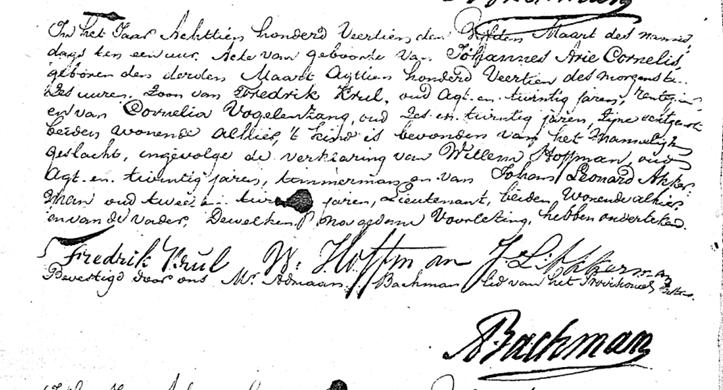 In het Jaar Achttien honderd Veertien den Maart des namid
dags ten een uur, Acte van geboorte van Johannes Arie Cornelis,
geboren den derden Maart Agttien honderd Veertien des morgens te
Zes uuren, Zoon van Fredrik Krul, oud Agt en twintig jaren, rentenier
en van Cornelia Vogelenzang, oud Zes en twintig jaren, Zijne echtgenote
beiden wonende alhier, 't kind is bevonden van het mannelijk
geslacht, ingevolge de verklaring van Willem Hoffman, oud
Agt en twintig jaren, timmerman en van Johan Leonard Akker
man oud twee en jaren, Lieutenant, beiden Wonende alhier
en van de vader, Dewelken, na gedane Voorlezing, hebben onderteekend.
Fredrik Krul W. Hoffman J L Akkerman
Bevestigd door ons Mr. Adriaan Bachman lid van het Provisioneel
ABachman